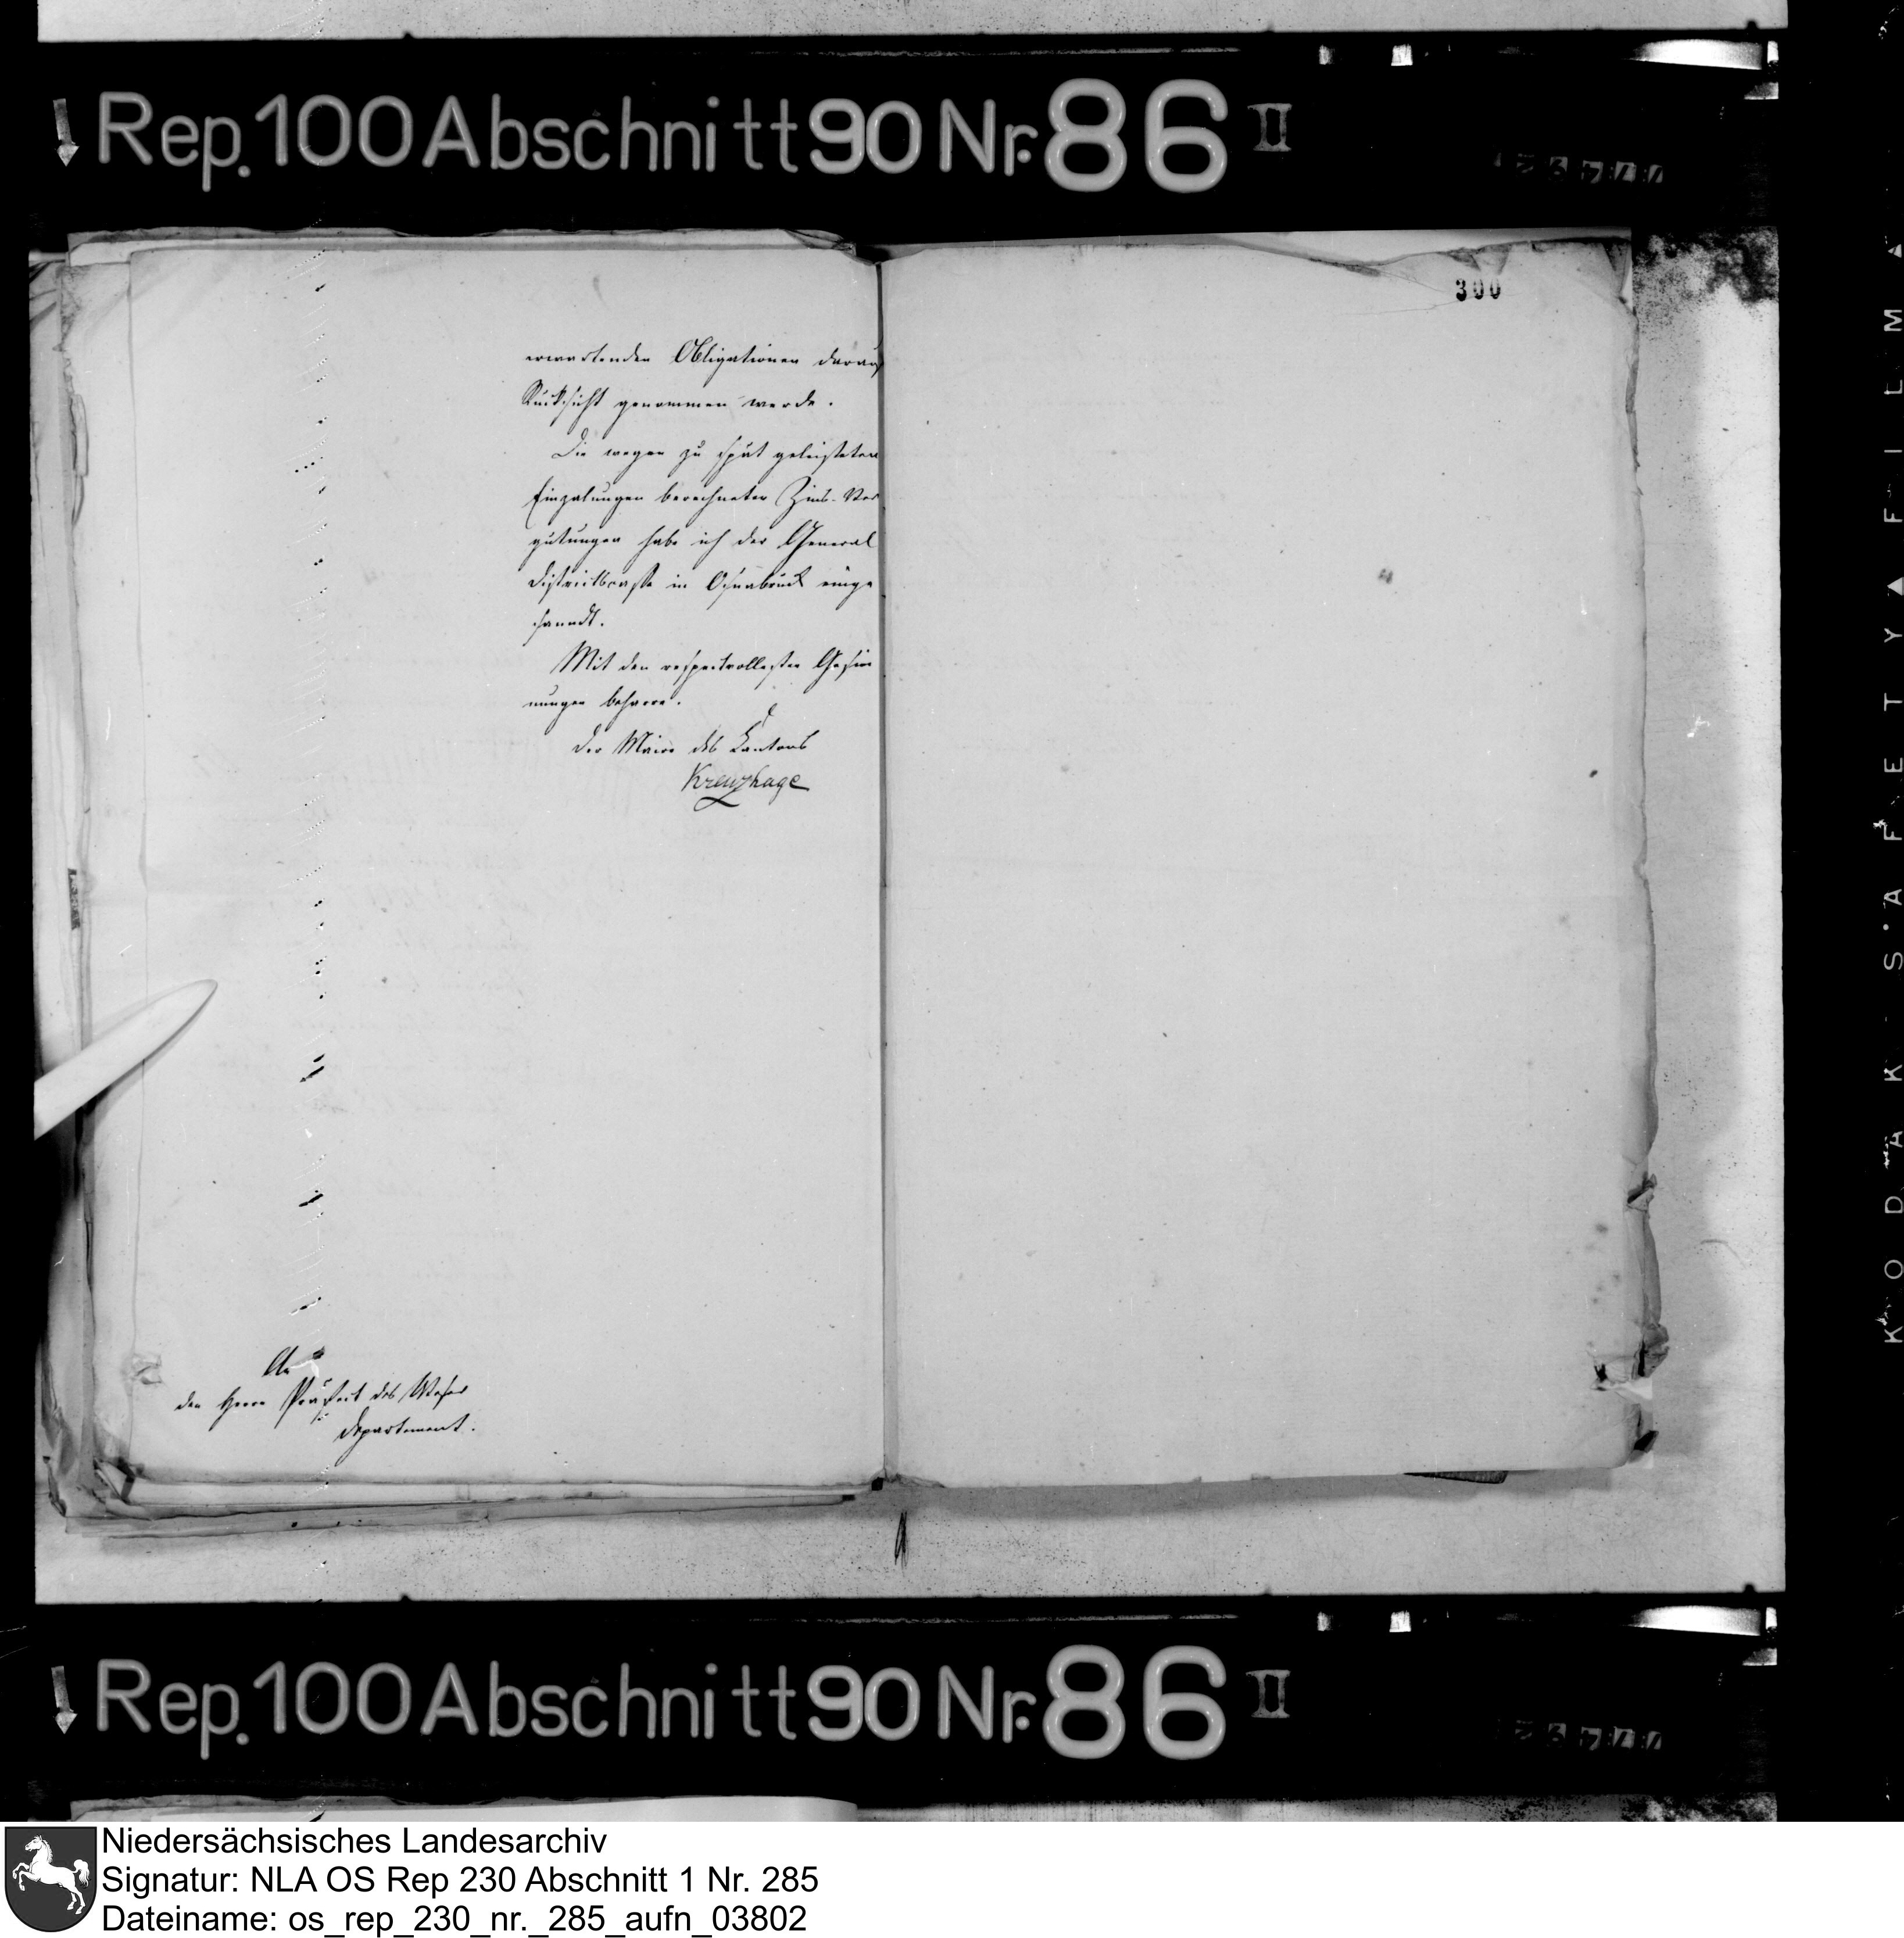 Rep. 100 Abschnitt 90 Nr. 86 II
300
erwartenden Obligationen darauf
Rücksicht genommen werde.
Die wegen zu spät geleisteten
Einzalungen berechneten Zins-Ver
gütungen habe ich der General
Districtscasse in Osnabrück einge
sandt.
Mit den respectvollesten Gesin
nungen beharre.
Der Maire des Cantons
Kreuzhage
An
den Herrn Präfect des Weser
Departement.
Rep. 100 Abschnitt 90 Nr. 86 II
KODAK · SAFETY ▲ FILM ▲
Niedersächsisches Landesarchiv
Signatur: NLA OS Rep 230 Abschnitt 1 Nr. 285
Dateiname: os_rep_230_nr._285_aufn_03802